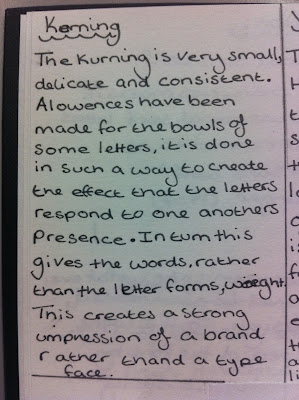 Kerning
The Kurning is very small,
delicate and consistent.
Alowences have been
made for the bowls of
some letters, it is done
in such a way to create
the effect that the letters
respond to one anothers
presence. In turn this
gives the words, rather
than the letter forms, weight.
This creates a strong
impression of a brand
rather thand a type
face.